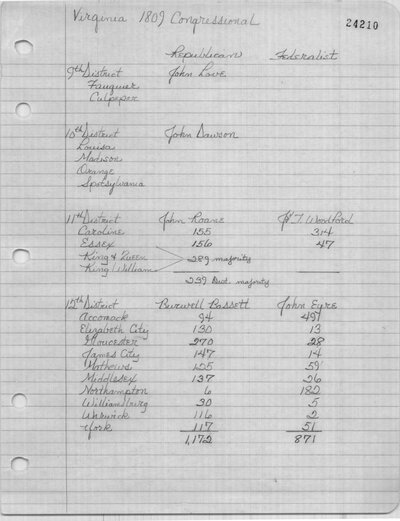 Virginia 1809 Congressional 24210
Republican Federalist
9th District John Love
Fauquier
Culpeper
10th District John Dawson
Louisa
Madison
Orange
Spotsylvania
11th District John Roane T. Woodford
Caroline 155 314
Essex 156 47
King & Queen 289 majority
King William
239 Dist. majority
12th District Burwell Bassett John Eyre
Accomack 94 491
Elizabeth City 130 13
Gloucester 270 28
James City 147 14
Mathews 125 59
Middlesex 137 26
Northampton 6 182
Williamsburg 30 5
Warwick 116 2
York 117 51
1,172 871